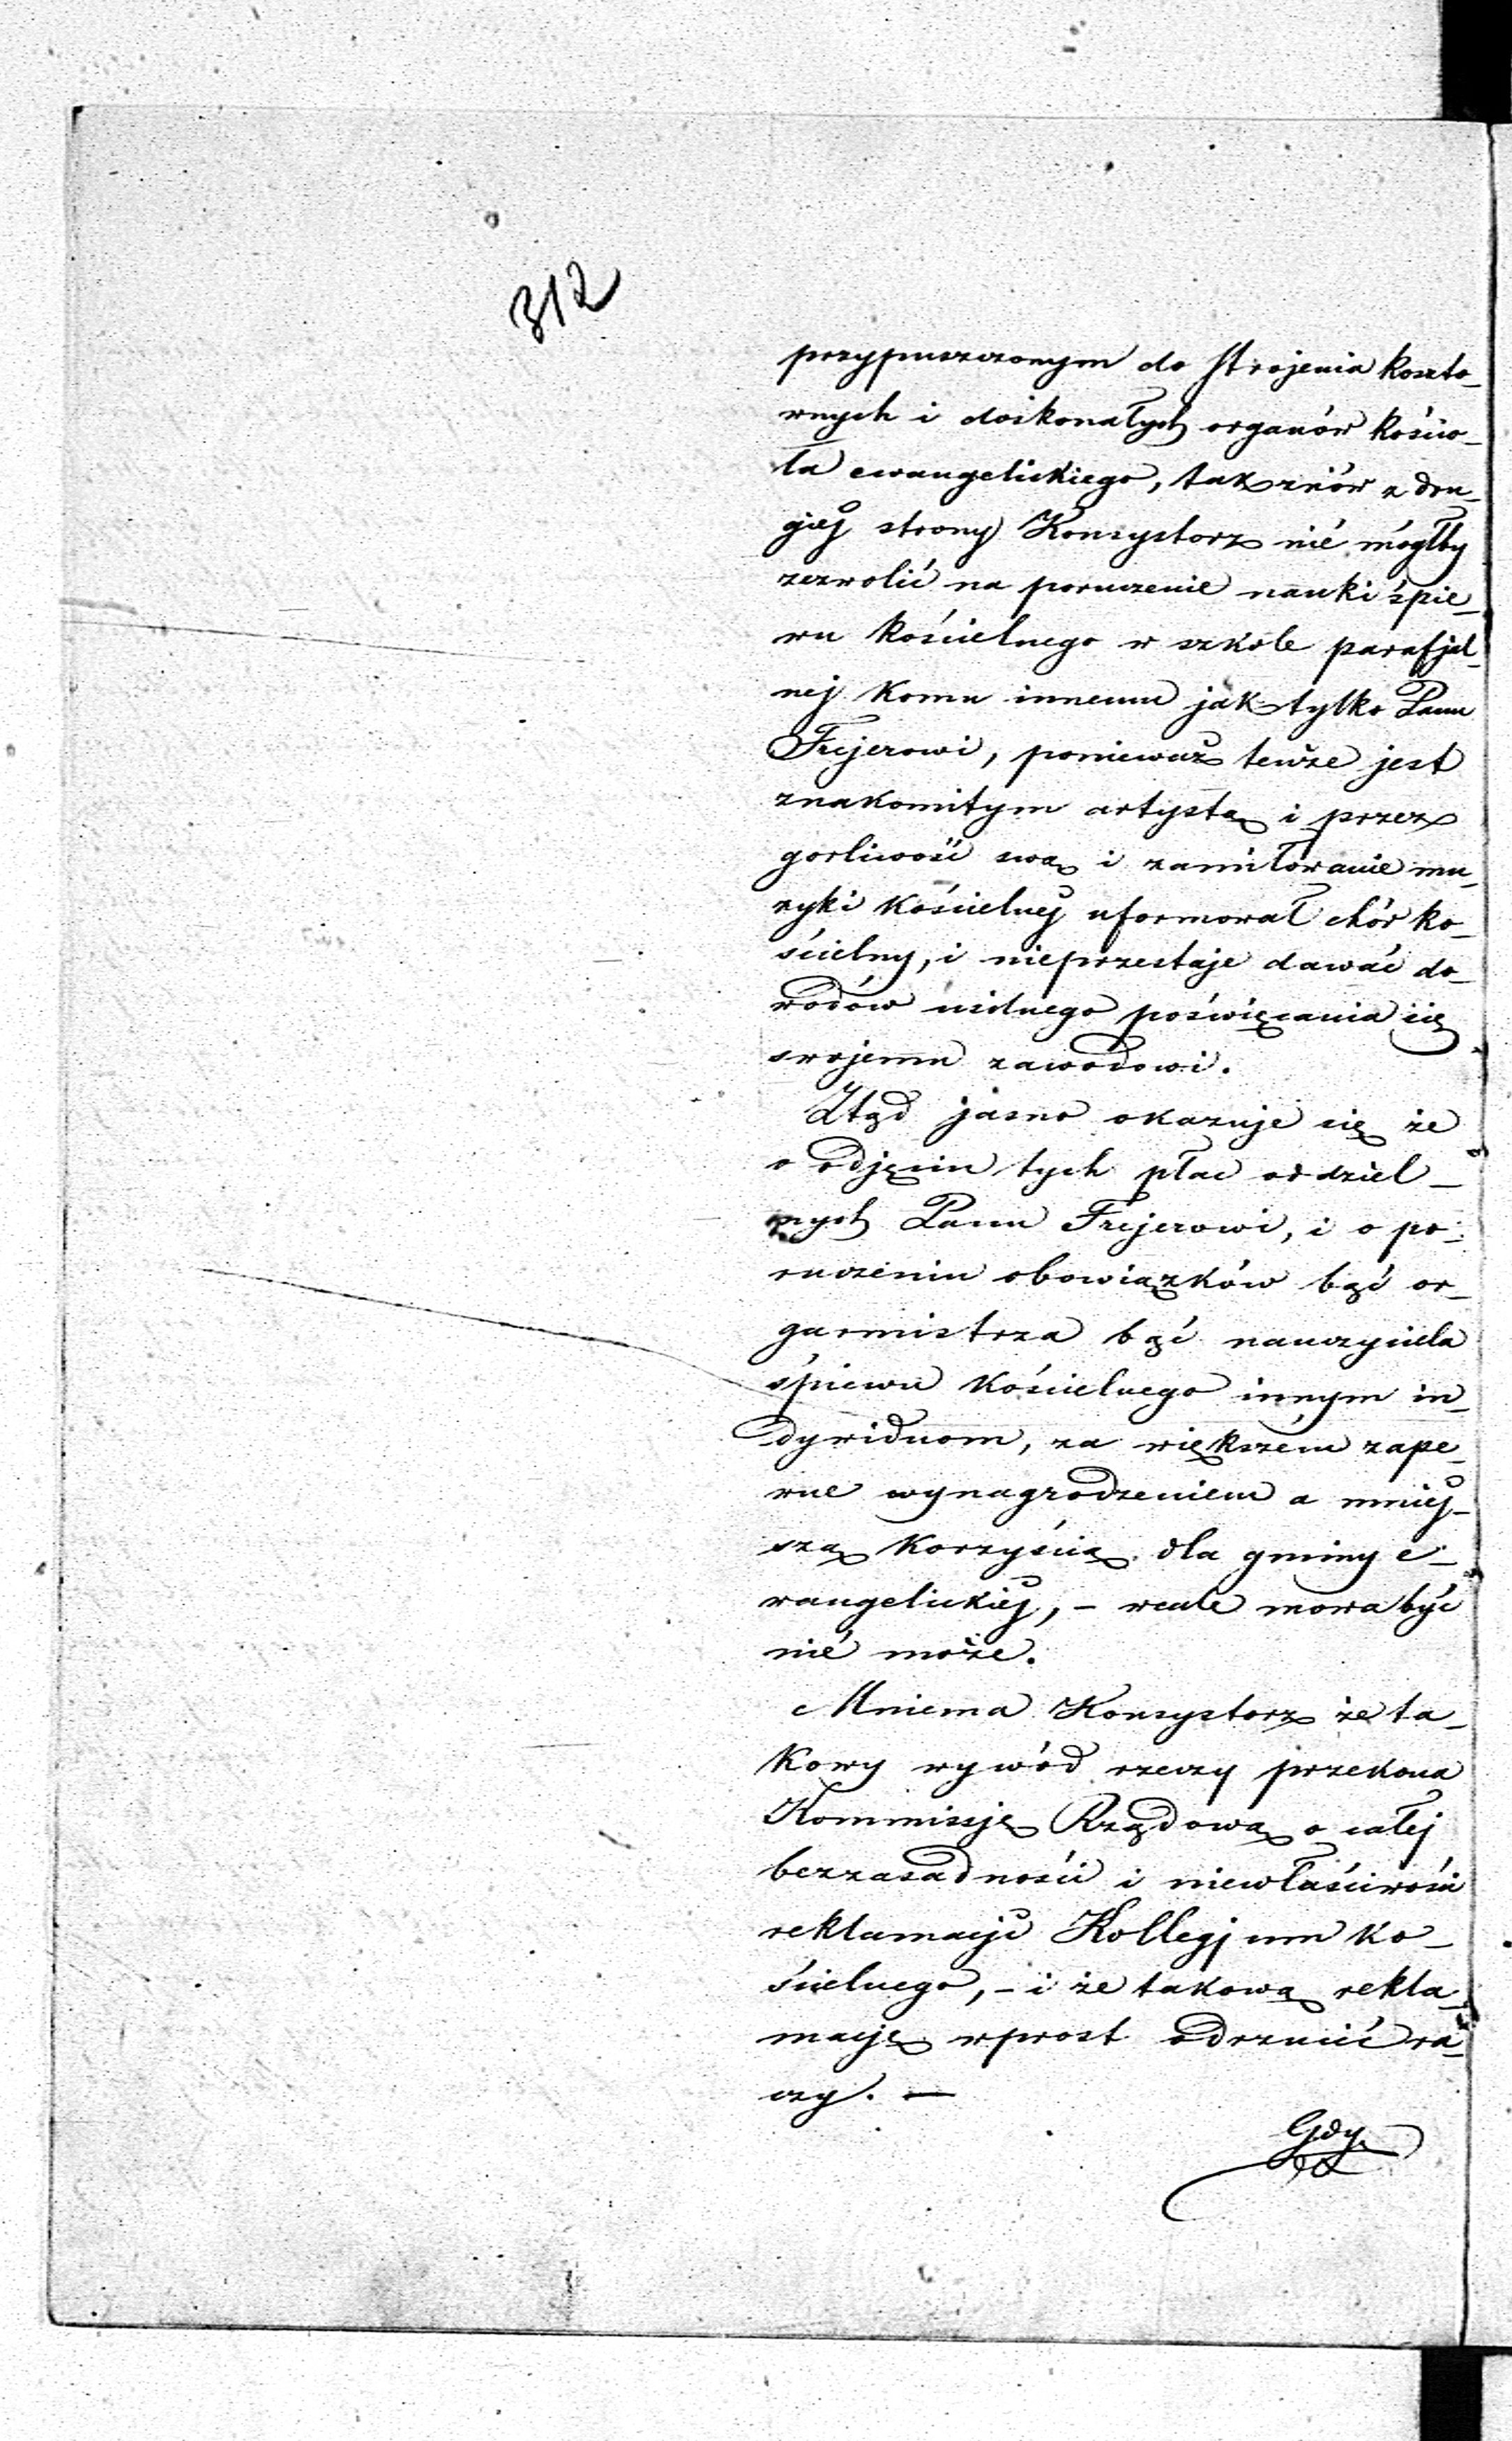 312
przypuszczonym do strojenia koszto_
wnych i doskonałych organów kościo_
ła ewangelickiego, tak znów z dru_
giéj strony Konsystorz nié mógłby
zezwolić na poruczenie nauki śpie_
wu kościelnego w szkole parafjal_
nej komu innemu jak tylko Panu
Frejerowi, ponieważ tenże jest
znakomitym artystą i przez
gorliwość swą i zamiłowanie mu_
zyki kościelnéj uformował chór ko_
ścielny, i nieprzestaje dawać do_
wodów usilnego poświęcania się
swojemu zawodowi.
Ztąd jasno okazuje się że
o odjęciu tych płac oddziel_
nych Panu Frejerowi, i o po_
ruczeniu obowiązków bądź or_
garmistrza bąć nauczyciela
śpiewu kościelnego innym in_
dywiduom, za większém zape_
wne wynagrodzeniem a mniéj_
szą korzyścią dla gminy e_
wangelickiéj, – wcale mowa być
nié może.
Mniema Konsystorz że ta_
kowy wywód rzeczy przekona
Kommissję Rządową o całéj
bezzasadności i niewłaściwości
reklamacji Kollegjum ko_
ścielnego, – i że takową rekla_
mację wprost odrzucić ra_
czy. —
Gdy